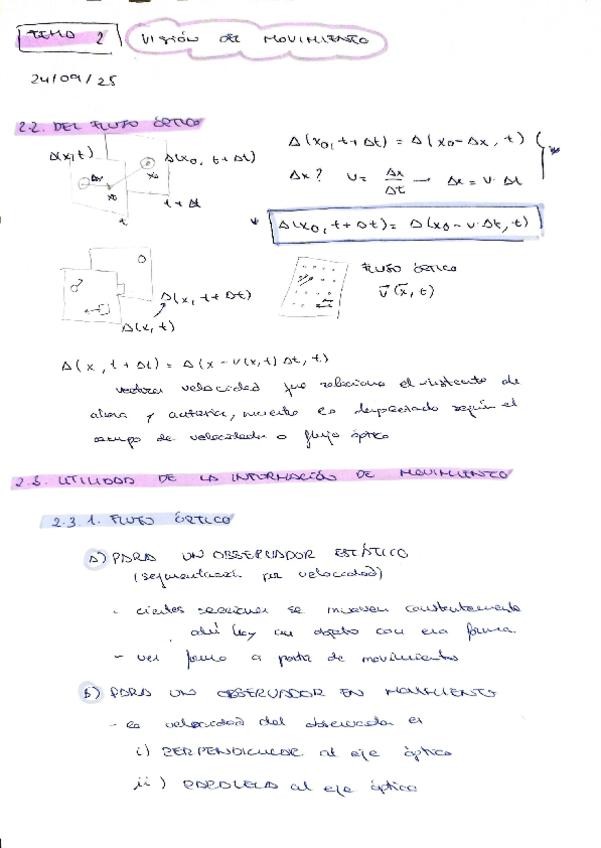 TEMA 2 VISIÓN DEL MOVIMIENTO
24/09/25
2.2. DEL FLUJO ÓPTICO
A(x,t) A(x0, t+Δt)
Δx x0 x0
t t+Δt
A(x0, t+Δt) = A(x0-Δx, t)
Δx? v = Δx/Δt → Δx = v·Δt
* A(x0, t+Δt) = A(x0 - v·Δt, t)
A(x, t+Δt)
A(x, t)
FLUJO ÓPTICO
v(x, t)
A(x, t+Δt) = A(x - v(x,t) Δt, t)
vector velocidad que relaciona el instante de
ahora y anterior, muestra es desplazado según el
campo de velocidades o flujo óptico
2.3. UTILIDAD DE LA INFORMACIÓN DE MOVIMIENTO
2.3.1. FLUJO ÓPTICO
A) PARA UN OBSERVADOR ESTÁTICO
(segmentación por velocidad)
- ciertas secciones se mueven constantemente
ahí hay un objeto con esa forma.
- ver forma a partir de movimientos
B) PARA UN OBSERVADOR EN MOVIMIENTO
- la velocidad del observador es
i) PERPENDICULAR al eje óptico
ii) PARALELA al eje óptico